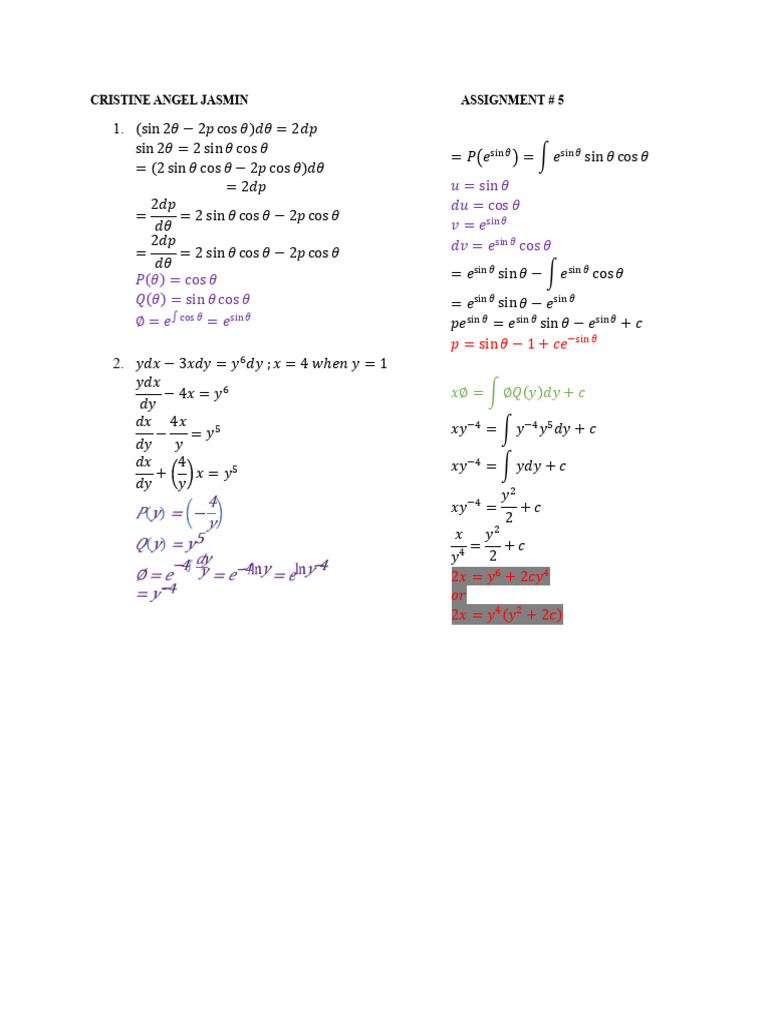 CRISTINE ANGEL JASMIN
ASSIGNMENT # 5
1. (sin 2θ − 2p cos θ)dθ = 2dp
sin 2θ = 2 sin θ cos θ
= (2 sin θ cos θ − 2p cos θ)dθ
= 2dp
= 2dp/dθ = 2 sin θ cos θ − 2p cos θ
= 2dp/dθ = 2 sin θ cos θ − 2p cos θ
P(θ) = cos θ
Q(θ) = sin θ cos θ
∅ = e^∫ cos θ = e^sin θ
= P(e^sin θ) = ∫ e^sin θ sin θ cos θ
u = sin θ
du = cos θ
v = e^sin θ
dv = e^sin θ cos θ
= e^sin θ sin θ − ∫ e^sin θ cos θ
= e^sin θ sin θ − e^sin θ
pe^sin θ = e^sin θ sin θ − e^sin θ + c
p = sin θ − 1 + ce^−sin θ
2. ydx − 3xdy = y^6dy ; x = 4 when y = 1
ydx/dy − 4x = y^6
dx/dy − 4x/y = y^5
dx/dy + (4/y)x = y^5
P(y) = (−4/y)
Q(y) = y^5
∅ = e^−4∫dy/y = e^−4lny = e^lny^−4
= y^−4
x∅ = ∫ ∅Q(y)dy + c
xy^−4 = ∫ y^−4y^5dy + c
xy^−4 = ∫ ydy + c
xy^−4 = y^2/2 + c
x/y^4 = y^2/2 + c
2x = y^6 + 2cy^4
or
2x = y^4(y^2 + 2c)